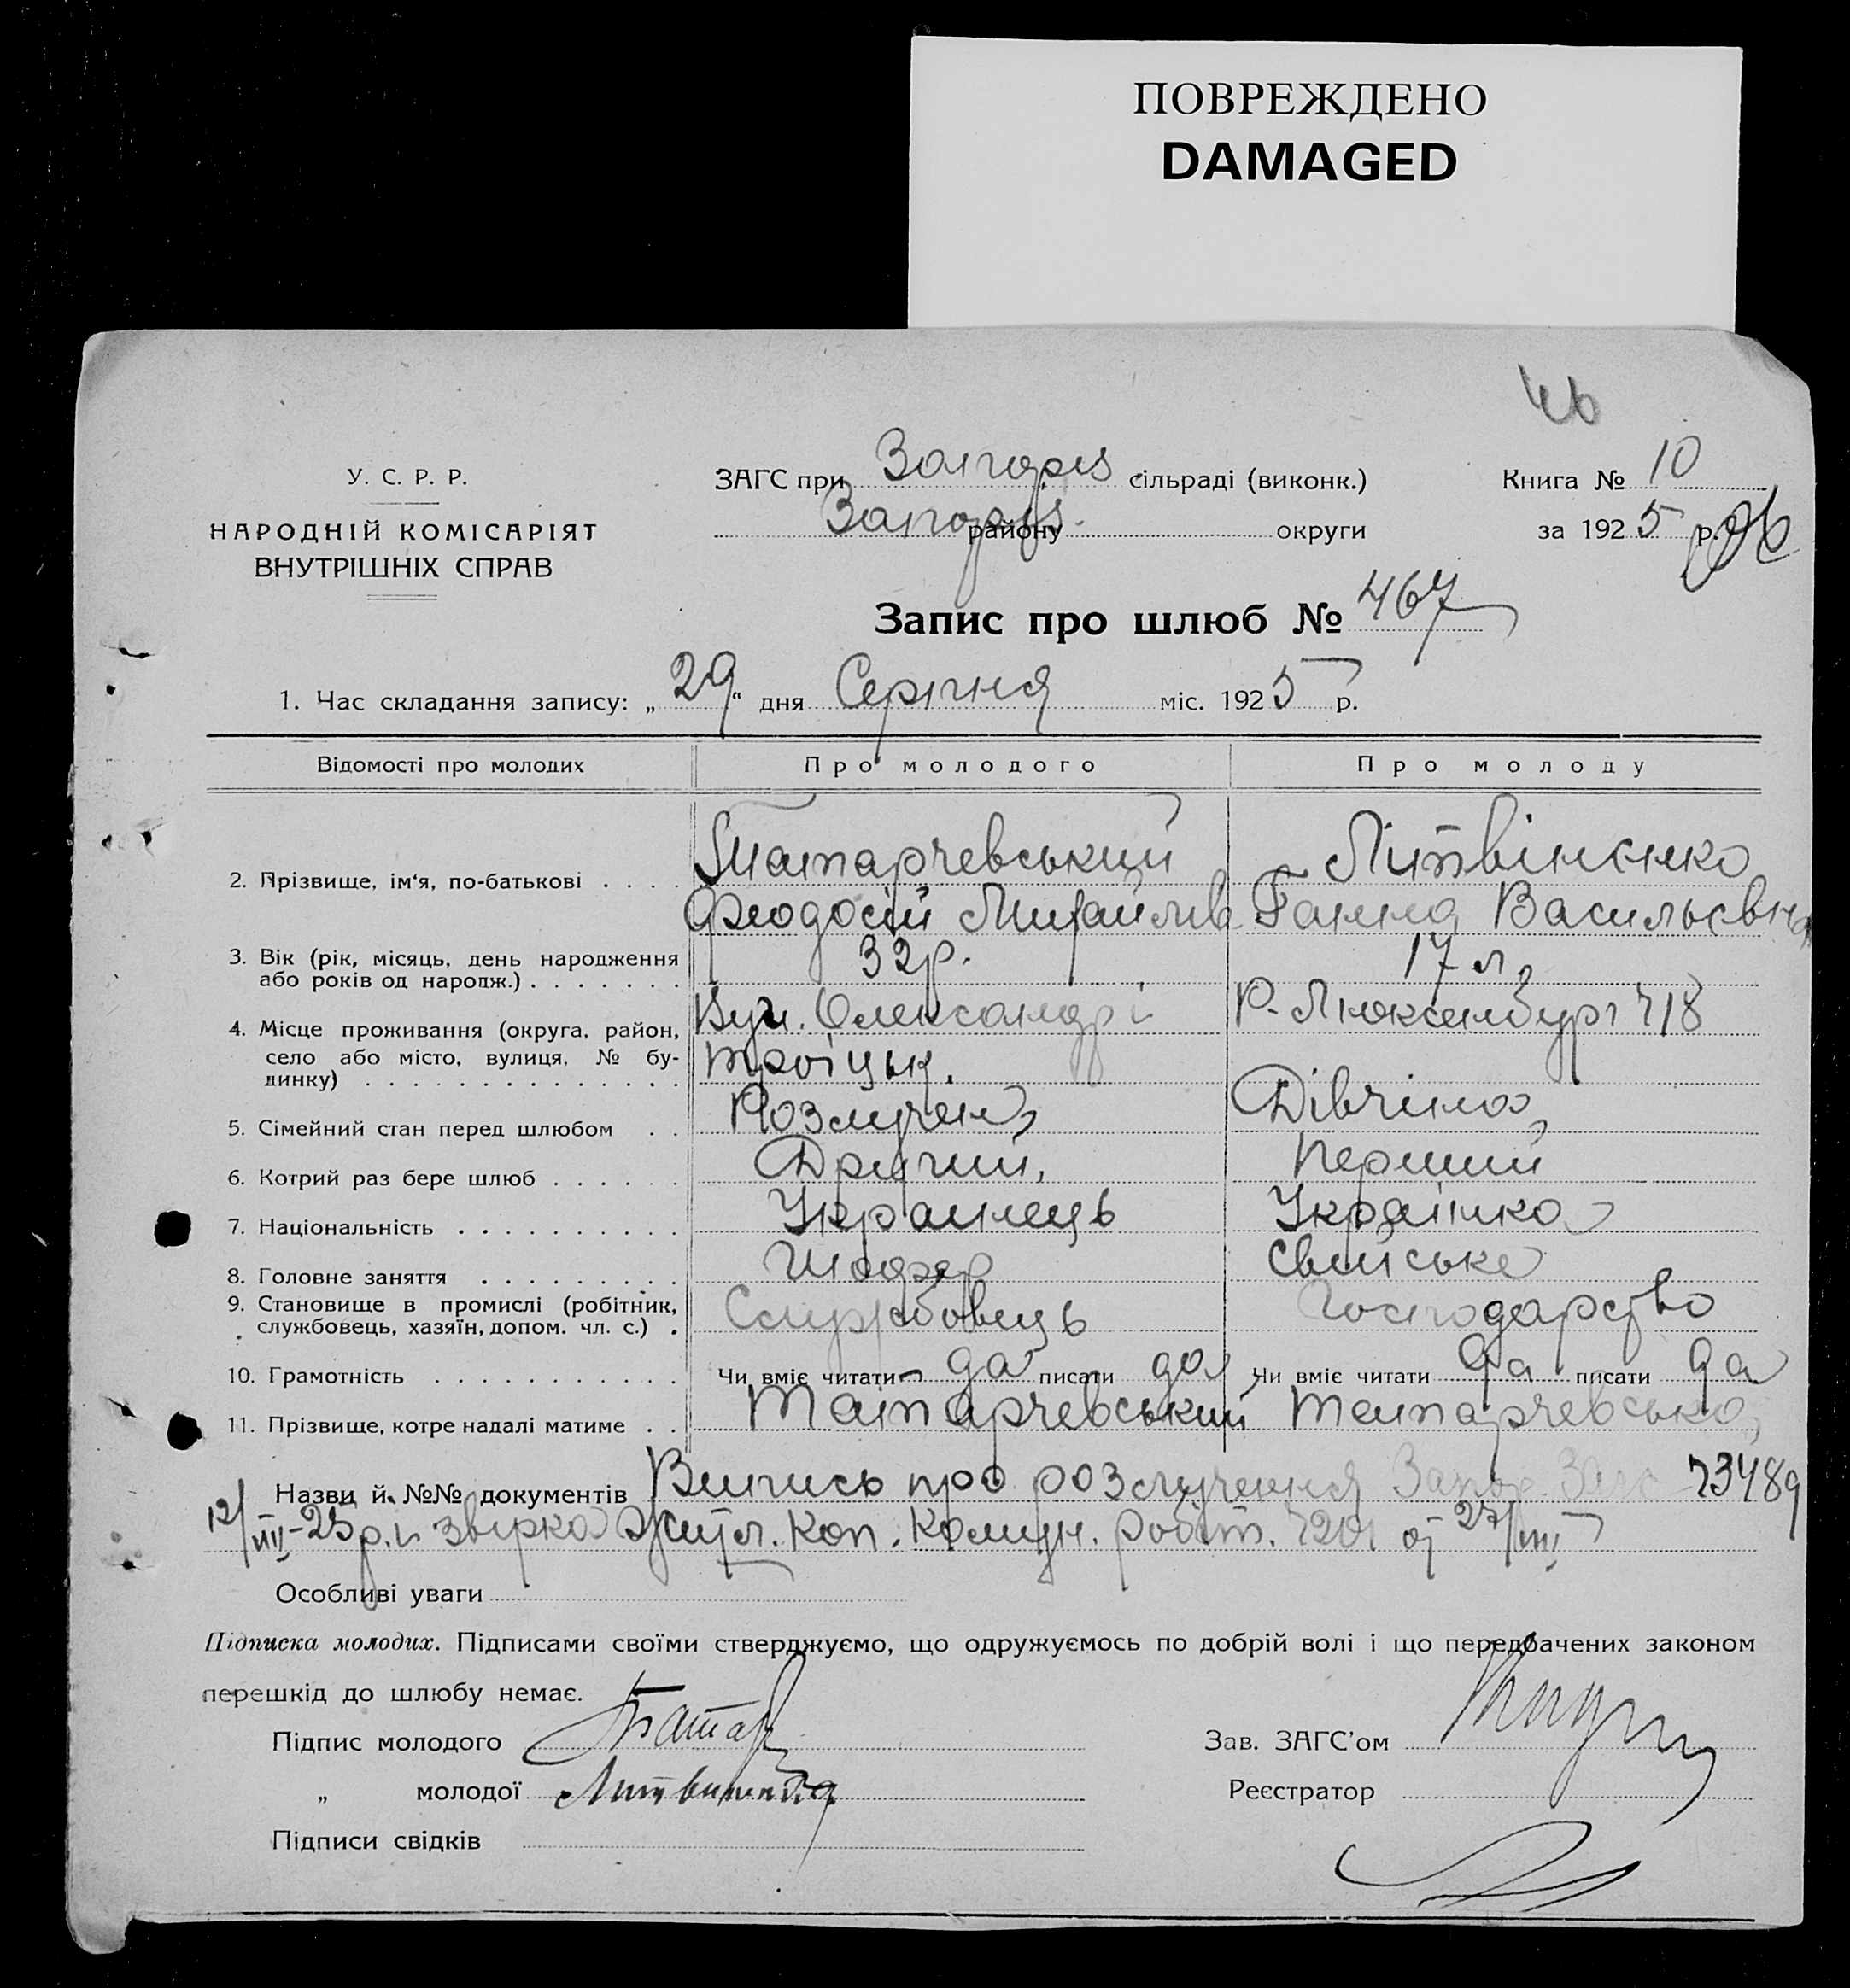 ПОВРЕЖДЕНО
DAMAGED
У. С. Р. Р.
НАРОДНІЙ КОМІСАРІЯТ
ВНУТРІШНІХ СПРАВ
ЗАГС при Запоріз. сільраді (виконк.)
Запоріз. району округи
Книга № 10
за 1925 р.
Запис про шлюб № 467
1. Час складання запису: „29“ дня Серпня міс. 1925 р.
Відомості про молодих Про молодого Про молоду
2. Прізвище, ім‘я, по-батькові . . . . Татарчевський Літвіненко
Феодосій Михайлів Ганна Васильєвна
3. Вік (рік, місяць, день народження або років од народж.) . . . . . . . 32 р. 17 л.
4. Місце проживання (округа, район, село або місто, вулиця, № будинку) . . . . . . . . . . . . . . Вул. Олександрі Р. Люксенбург 718
троїцьк.
5. Сімейний стан перед шлюбом . . Розлучен, Дівчина,
6. Котрий раз бере шлюб . . . . . . Другий, Перший
7. Національність . . . . . . . . . . Українець Українка
8. Головне заняття . . . . . . . . . Шофер Свійське
9. Становище в промислі (робітник, службовець, хазяїн, допом. чл. с.) . Службовець Господарство
10. Грамотність . . . . . . . . . . . Чи вміє читати да писати да Чи вміє читати да писати да
11. Прізвище, котре надалі матиме . . Татарчевський Татарчевська
Назви й №№ документів Випись про розлучення Запор. Загс 73489
12/VIII-25 р. и звірка Житл. Коп. Комун. робіт. 720 от 27/VIII
Особливі уваги
Підписка молодих. Підписами своїми стверджуємо, що одружуємось по добрій волі і що передбачених законом
перешкід до шлюбу немає.
Підпис молодого Татар Зав. ЗАГС’ом
„ молодої Литвиненко Реєстратор
Підписи свідків